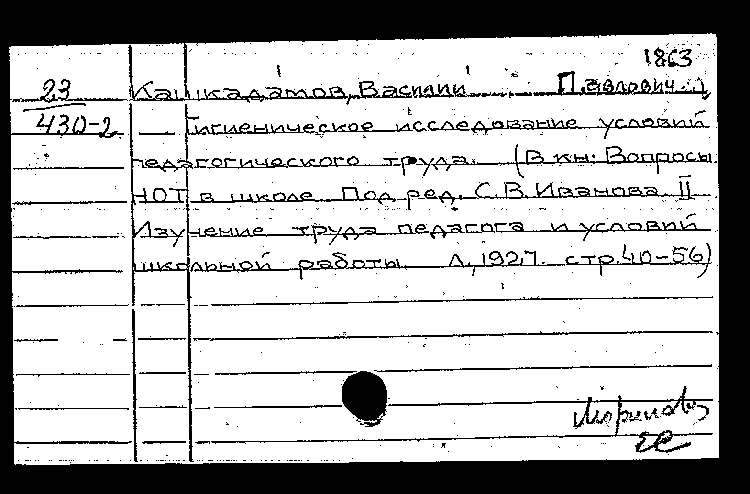 1863
23 Кашкадамов, Василий Павлович
430-2 Гигиеническое исследование условий
педагогического труда. (В кн: Вопросы
НОТ в школе Под ред. С.В. Иванова. II
Изучение труда педагога и условий
школьной работы. Л, 1927. стр. 40-56)